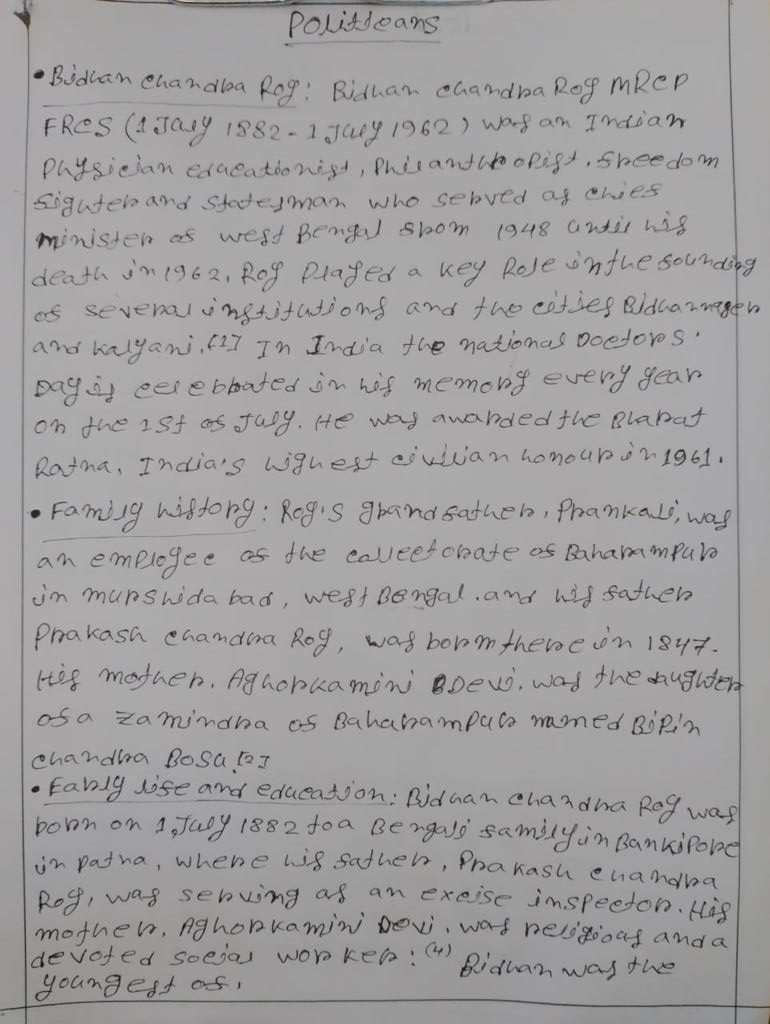 Politicans
• Bidhan Chandra Roy: Bidhan Chandra Roy MRCP
FRCS (1 July 1882 - 1 July 1962) was an Indian
Physician educationist, Philanthropist, freedom
fighter and statesman who served as chief
minister of west Bengal from 1948 until his
death in 1962. Roy Played a key Role in the founding
of several institutions and the cities Bidhannager
and Kalyani.[1] In India the national Doctors'
Day is celebrated in his memory every year
on the 1st of July. He was awarded the Bharat
Ratna, India's highest civilian honour in 1961.
• Family history: Roy's grandfather, Prankali, was
an employee of the collectorate of Baharampur
in murshidabad, west Bengal. and his father
Prakash Chandra Roy, was born there in 1847.
His mother, Aghorkamini Devi, was the daughter
of a zamindra of Baharampur named Bipin
Chandra Bosu.[2]
• Early life and education: Bidhan Chandra Roy was
born on 1, July 1882 to a Bengali family in Bankipore
in patna, where his father, Prakash Chandra
Roy, was serving as an excise inspector. His
mother, Aghorkamini Devi, was religious and a
devoted social worker: (4) Bidhan was the
youngest of,